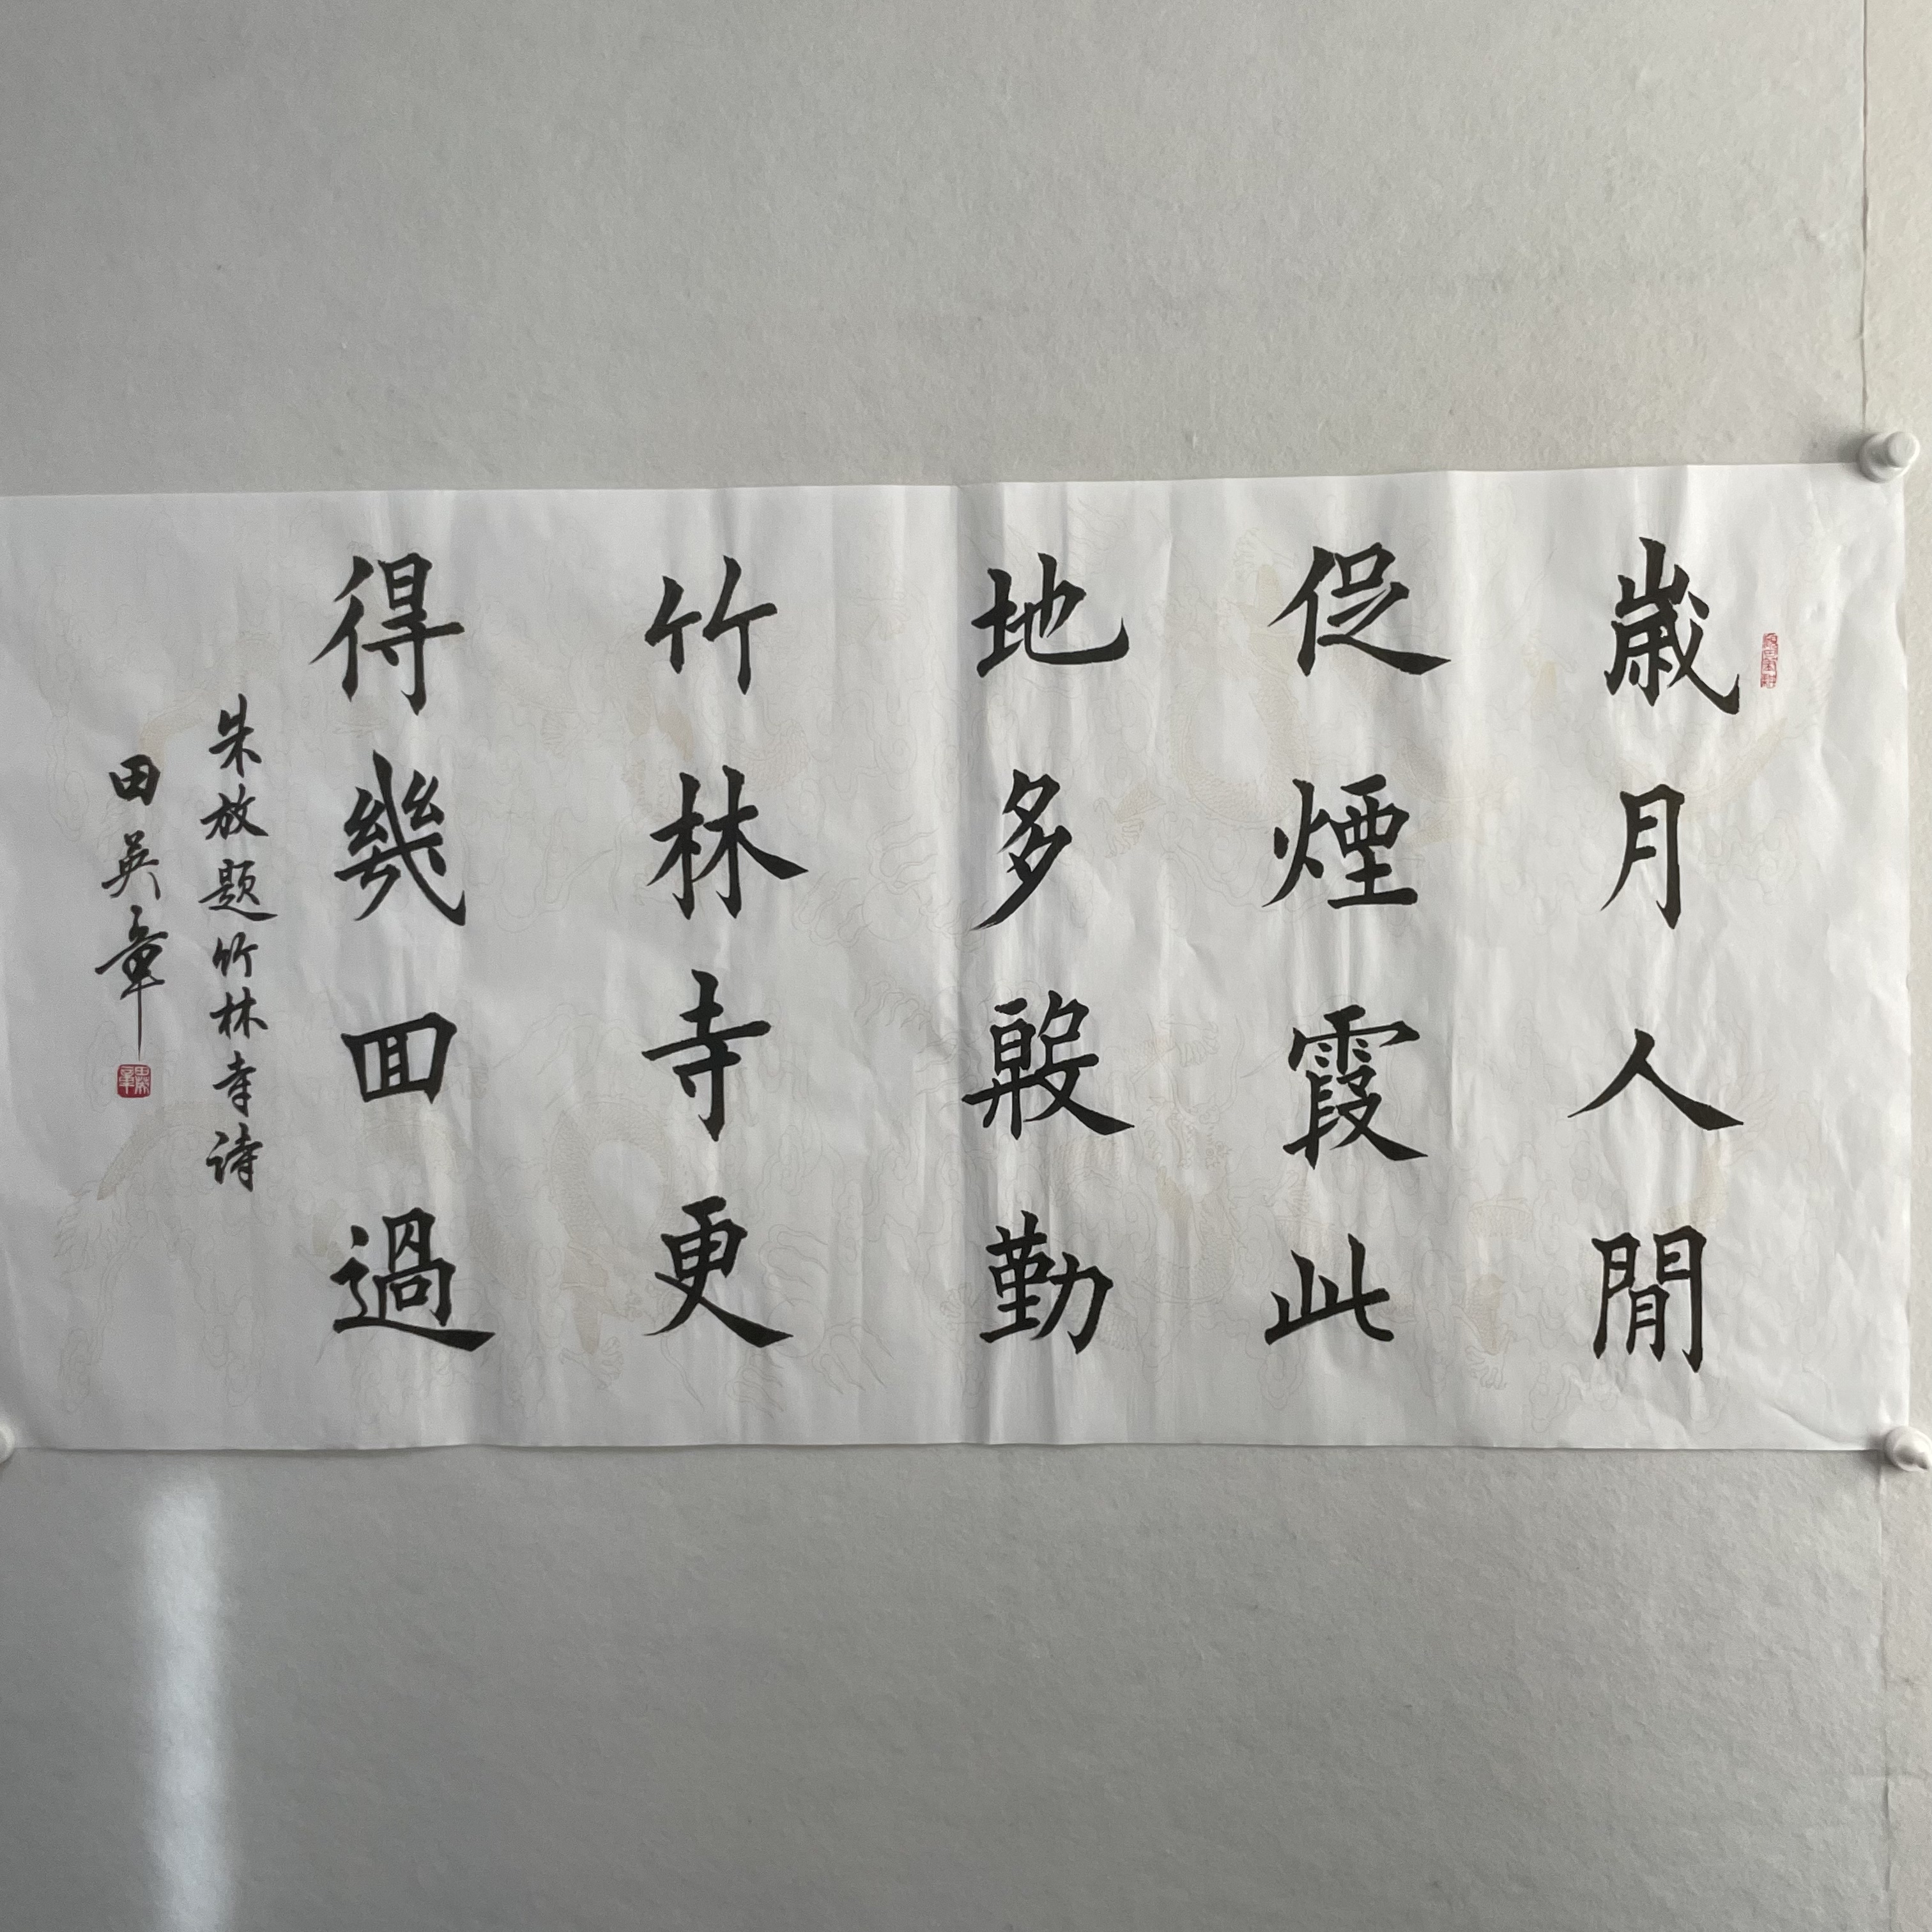 歲月人閒
促煙霞此
地多殷勤
竹林寺更
得幾回過
朱放題竹林寺诗
田英章